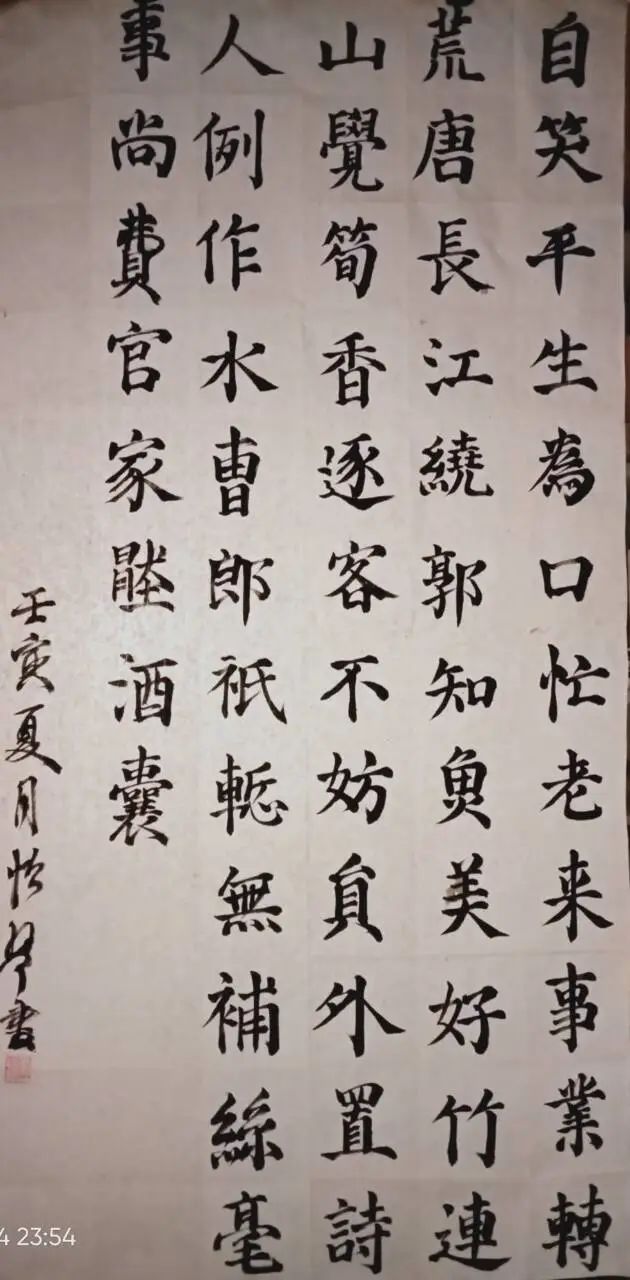 自笑平生為口忙老来事業轉
荒唐長江繞郭知魚美好竹連
山覺筍香逐客不妨員外置詩
人例作水曹郎祇慙無補絲毫
事尚費官家壓酒囊
壬寅夏月怡琴書
4 23:54